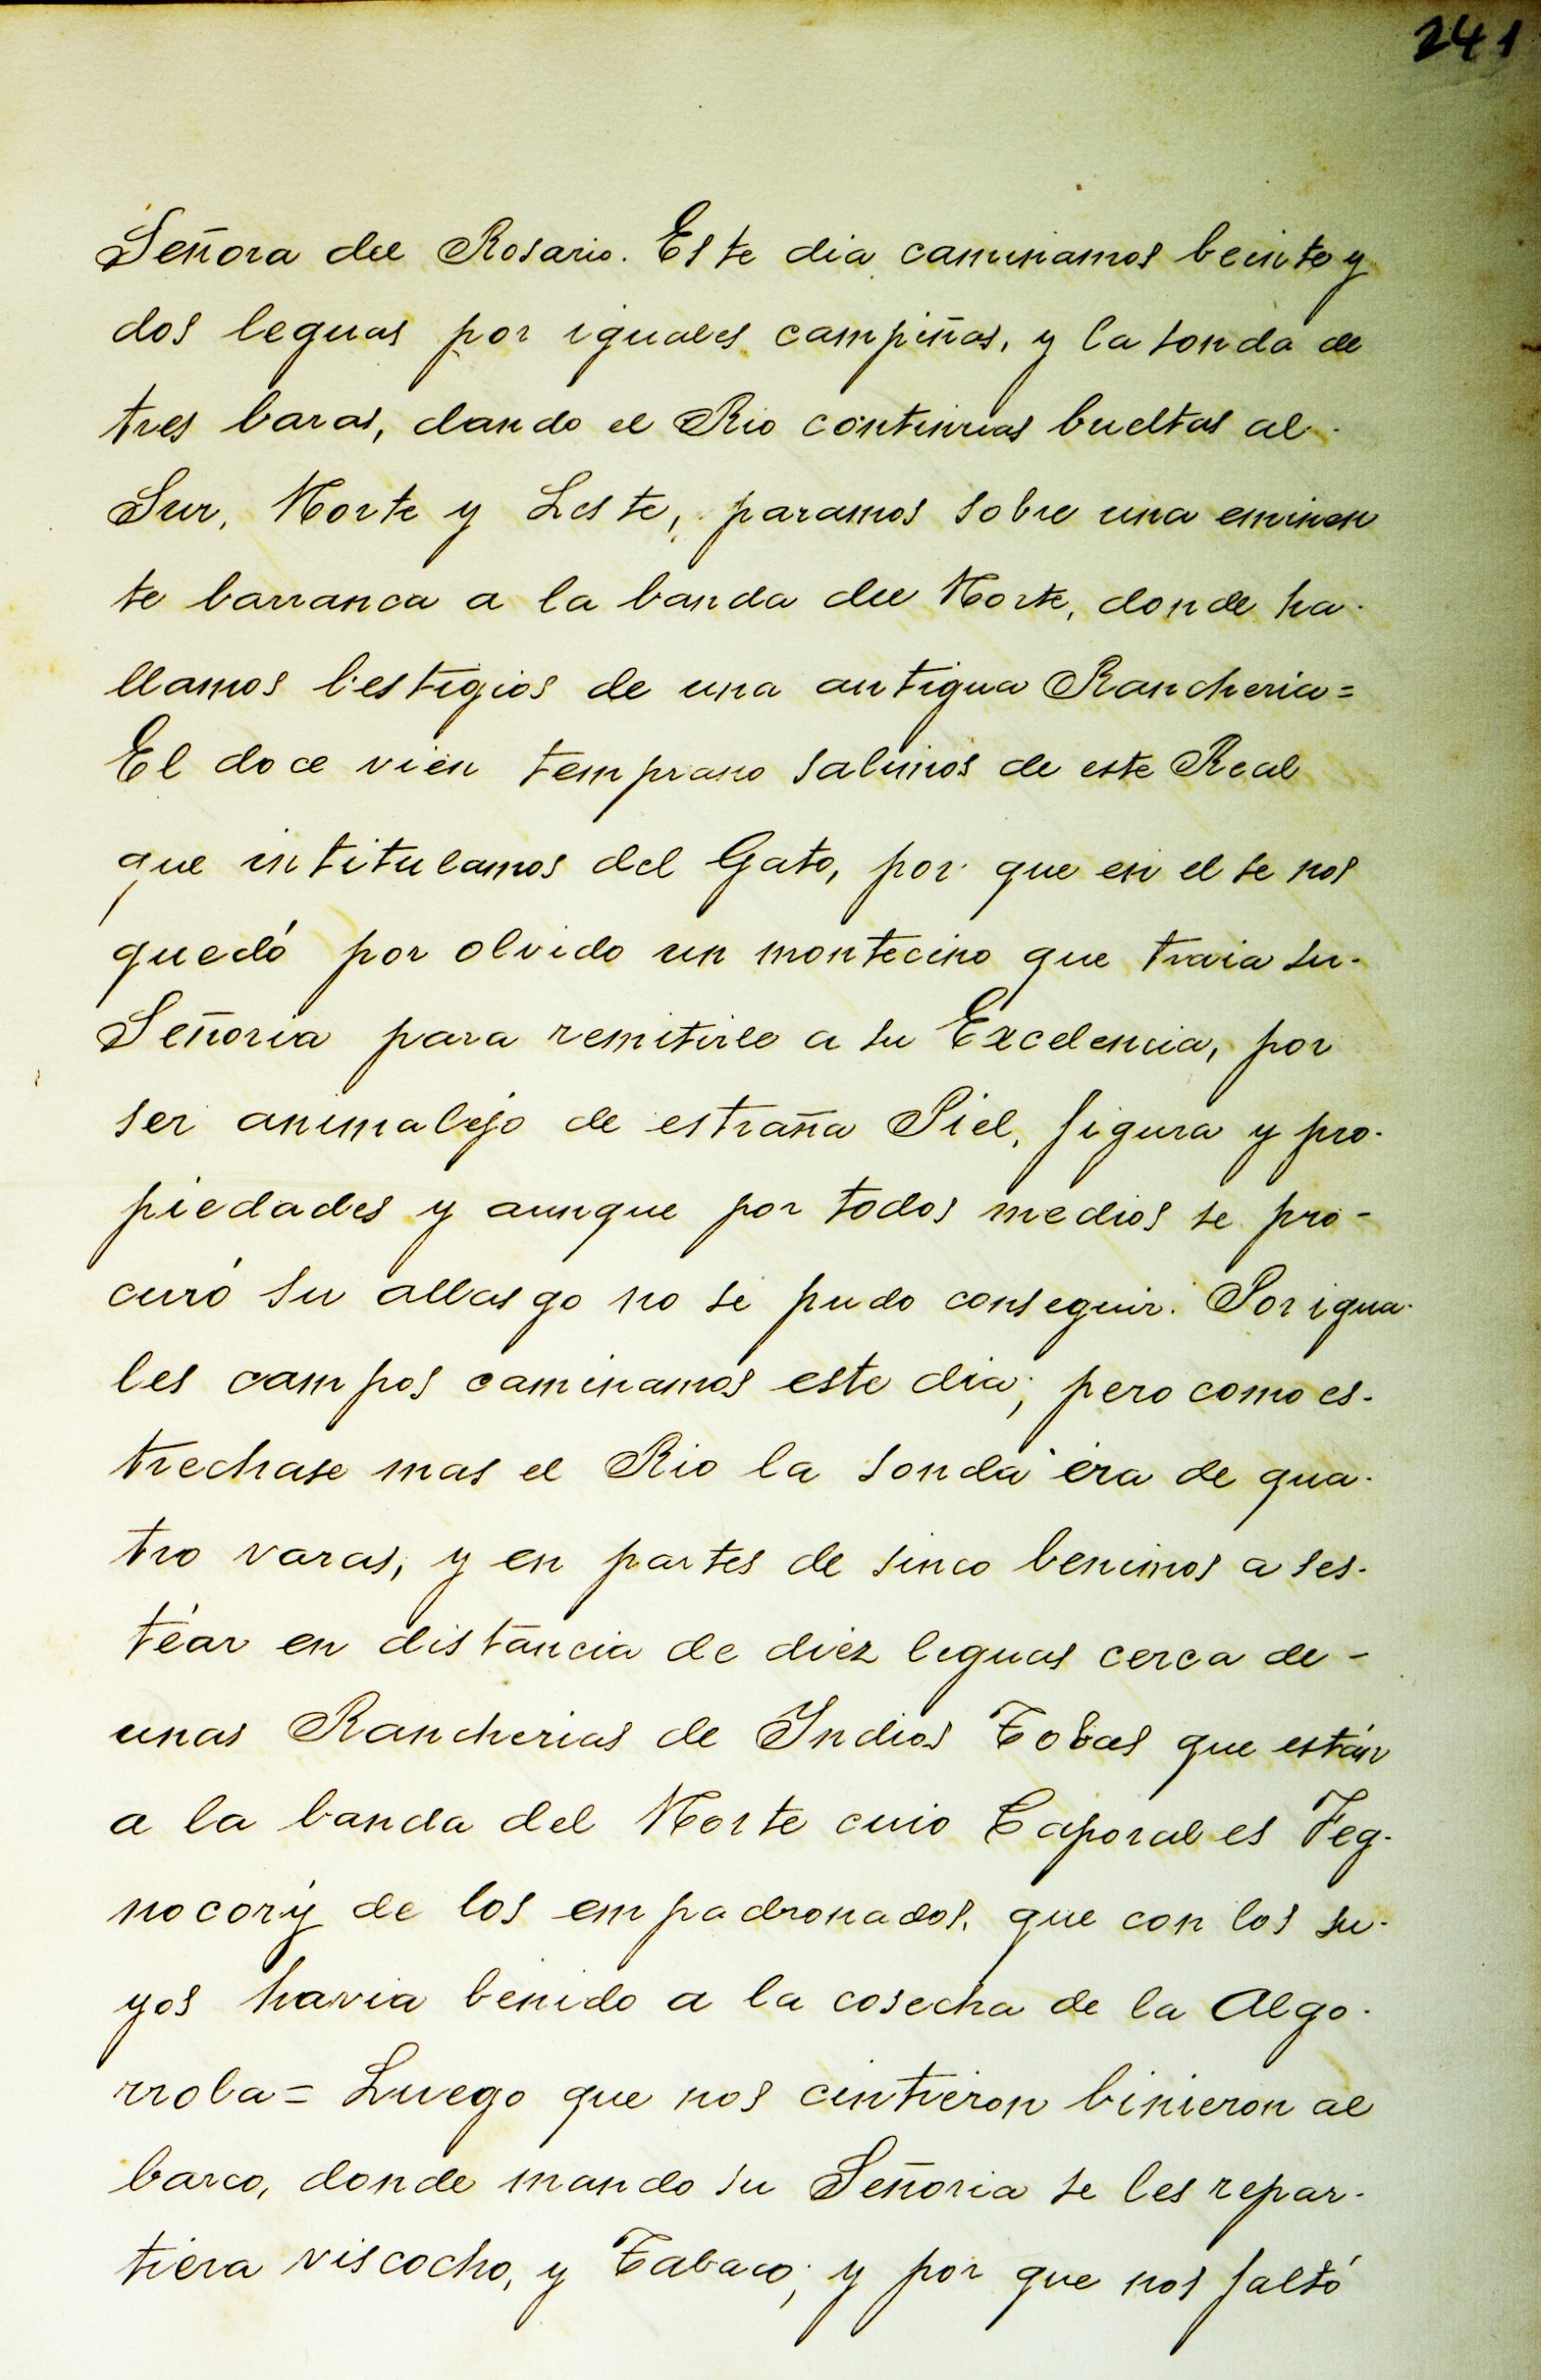 241
Señora del Rosario. Este dia caminamos beinte y
dos leguas por iguales campiñas, y la sonda de
tres baras, dando el Rio continuas bueltas al
Sur, Norte y Leste, paramos sobre una eminen
te barranca a la banda del Norte, donde ha-
llamos bestigios de una antigua Rancheria=
El doce vien temprano salimos de este Real
que intitulamos del Gato, por que en el se nos
quedó por olvido un montecino que traia su-
Señoria para remitirle a su Excelencia, por
ser animalejo de estraña Piel, figura y pro-
piedades y aunque por todos medios se pro-
curó su allasgo no se pudo conseguir. Por igua-
les campos caminamos este dia; pero como es-
trechase mas el Rio la sonda era de qua-
tro varas, y en partes de sinco benimos a ses-
téar en distancia de diez leguas cerca de-
unas Rancherias de Indios Tobas que están
a la banda del Norte cuio Caporal es Feg-
nocorý de los empadronados, que con los su-
yos havia benido a la cosecha de la Algo-
rrola= Luego que nos cintieron binieron al
barco, donde mando su Señoria se les repar-
tiera viscocho, y Tabaco; y por que nos faltó